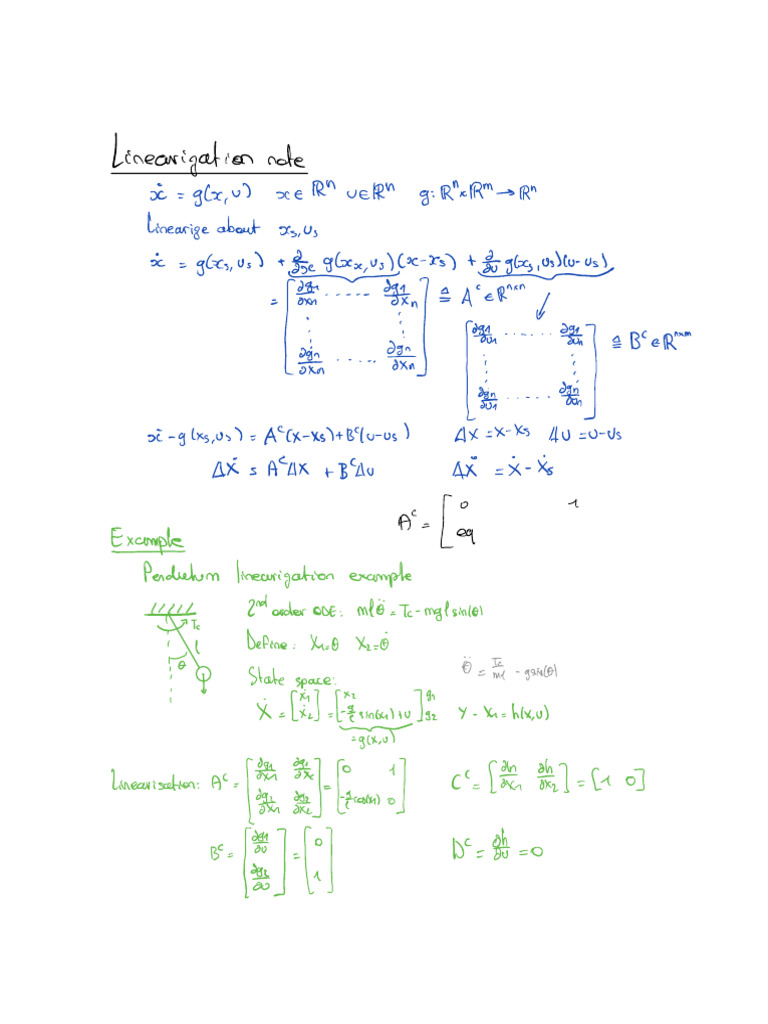 Linearization note
ẋ = g(x,u) x∈ℝⁿ u∈ℝⁿ g: ℝⁿ×ℝᵐ→ℝⁿ
Linearize about xₛ,uₛ
ẋ = g(xₛ,uₛ) + ∂/∂x g(xₓ,uₛ)(x-xₛ) + ∂/∂u g(xₛ,uₛ)(u-uₛ)
= [∂g₁/∂x₁ ...... ∂g₁/∂xₙ ; ⋮ ⋮ ; ∂gₙ/∂xₙ ..... ∂gₙ/∂xₙ] ≜ Aᶜ∈ℝⁿˣⁿ
[∂g₁/∂u₁ ...... ∂g₁/∂uₙ ; ⋮ ⋮ ; ∂gₙ/∂u₁ ..... ∂gₙ/∂uₙ] ≜ Bᶜ∈ℝⁿˣᵐ
ẋ - g(xₛ,uₛ) = Aᶜ(x-xₛ)+Bᶜ(u-uₛ) Δx = x-xₛ Δu = u-uₛ
Δẋ = AᶜΔx + BᶜΔu Δẋ = ẋ - ẋₛ
Aᶜ = [0 1 ; eq
Example
Pendulum linearization example
2nd order ODE: mlθ̈ = Tc - mgl sin(θ)
Tc
l
θ
Define: x₁=θ x₂=θ̇
θ̈ = Tc/ml - g sin(θ)
State space:
Ẋ = [ẋ₁ ; ẋ₂] = [x₂ ; -g/l sin(x₁)+u] g₁ g₂ y - x₁ = h(x,u)
=g(x,u)
Linearization: Aᶜ = [∂g₁/∂x₁ ∂g₁/∂x₂ ; ∂g₂/∂x₁ ∂g₂/∂x₂] = [0 1 ; -g/l cos(x₁) 0] Cᶜ = [∂h/∂x₁ ∂h/∂x₂] = [1 0]
Bᶜ = [∂g₁/∂u ; ∂g₂/∂u] = [0 ; 1] Dᶜ = ∂h/∂u = 0